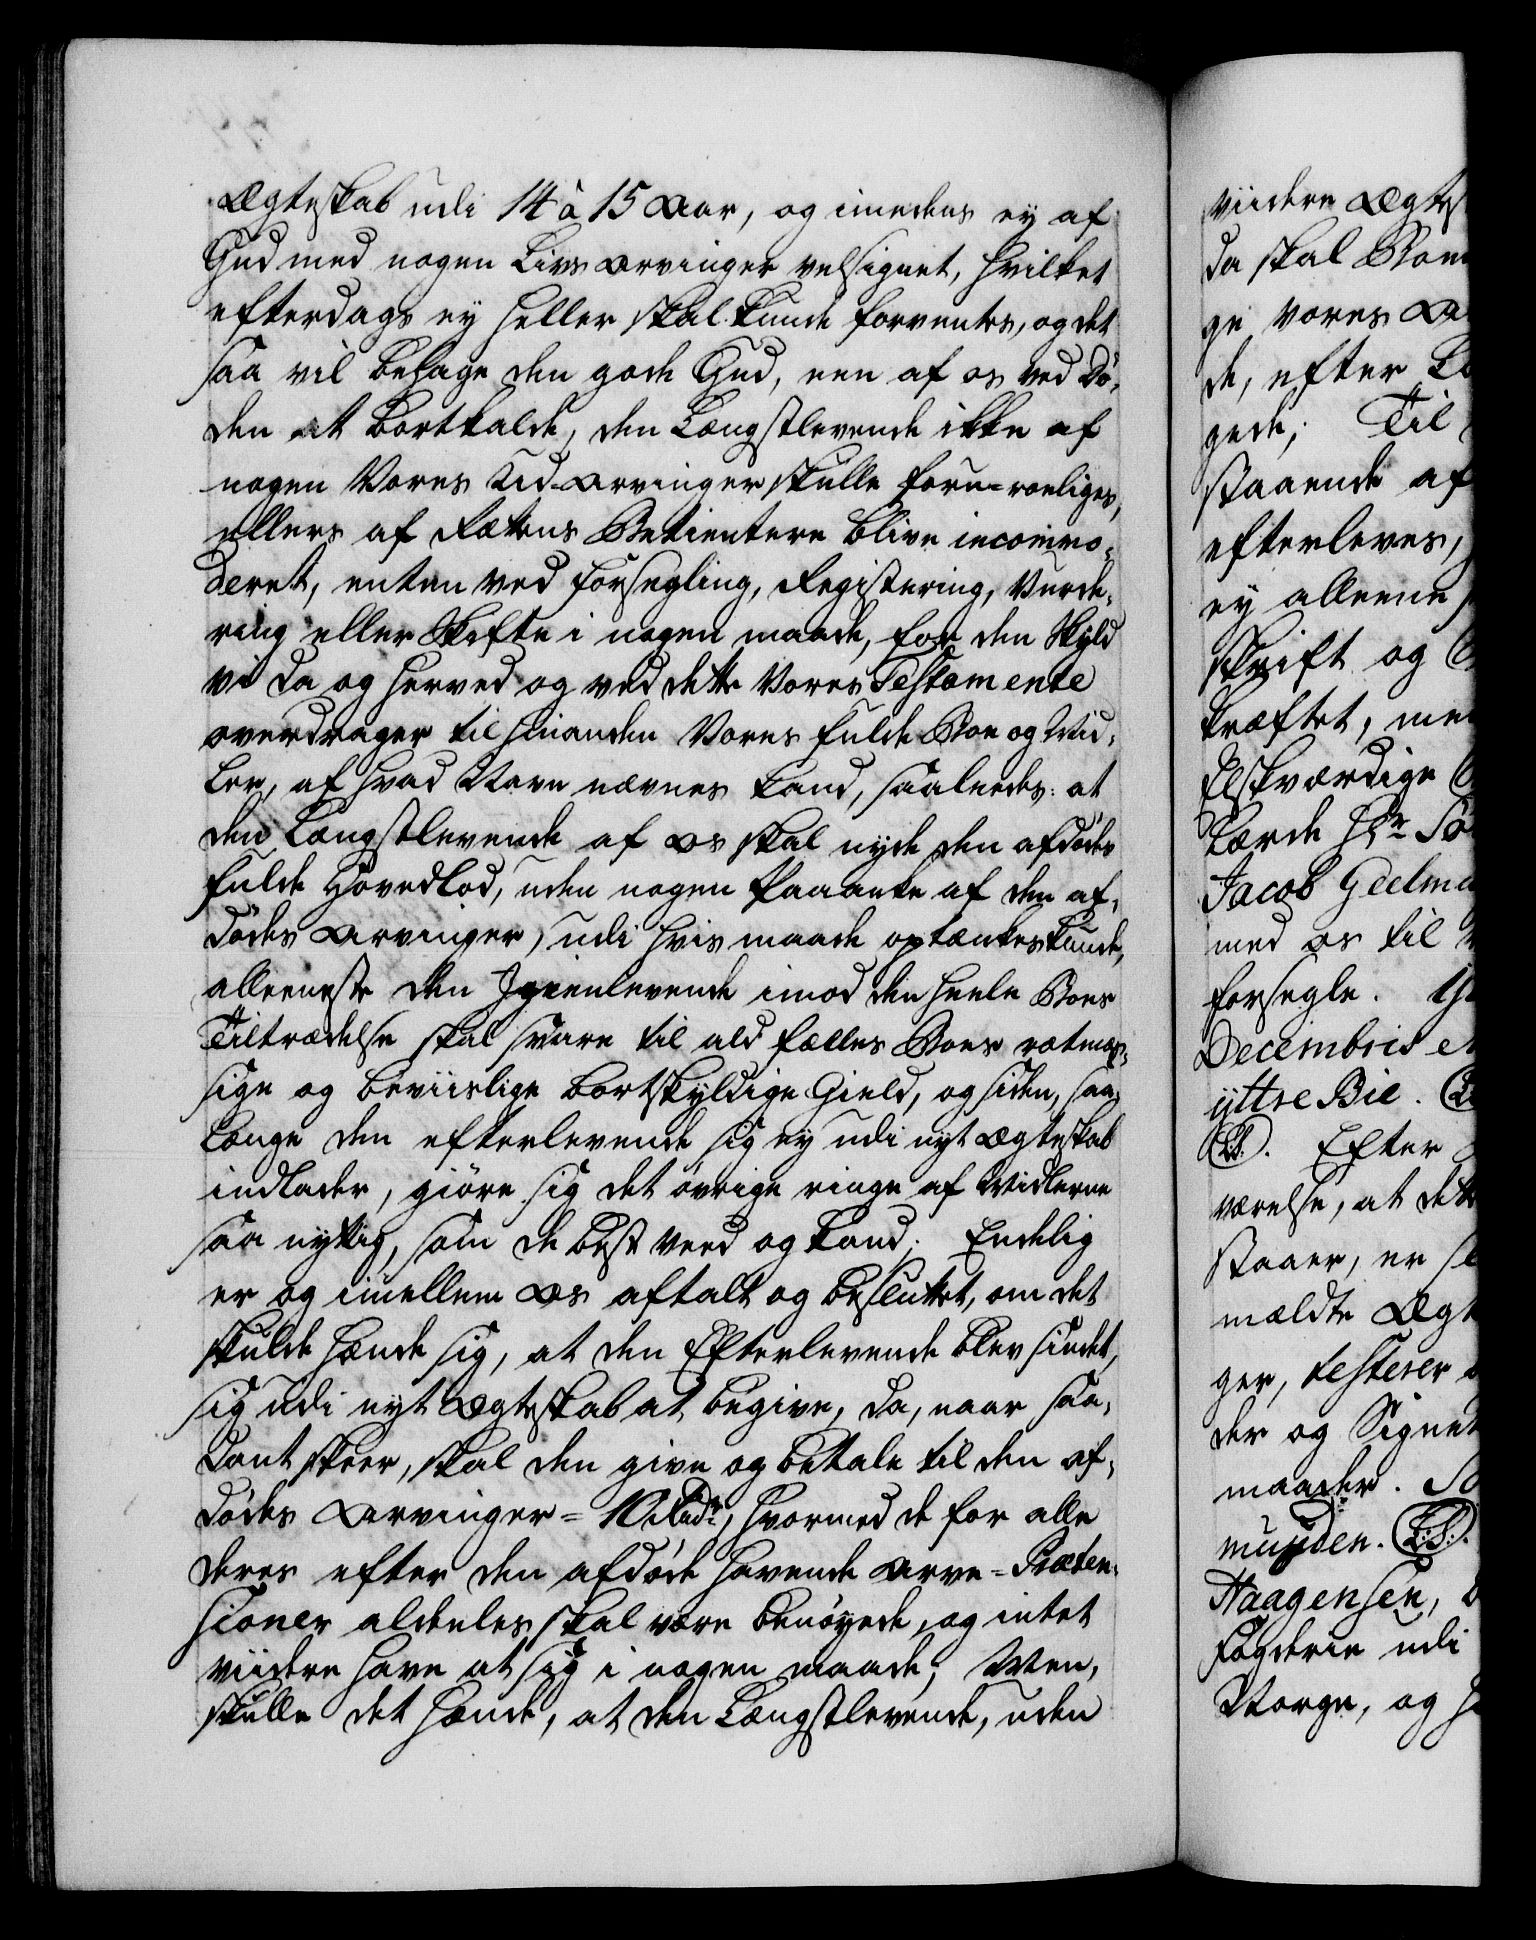 Ægteskab udi 14 à 15 Aar, og imedens ey af
Gud med nogen Livs Arvinger velsignet, hvilket
efterdags ey heller skal kunde forventes, og det
saa vil behage den gode Gud, een af os ved Dö-
den at bortkalde, den Længstlevende ikke af
nogen Vores Ud-Arvinger skulle foru-roeliges,
ellers af Rettens Betientere blive incommo-
deret, enten ved forsegling, Registering, Vurde-
ring eller Skifte i nogen maade, for den Skyld
vi da og herved og ved dette Vores Testamente
overdrager til hinanden Vores fulde Boe og Mid-
ler, af hvad Navn nævnes kand, saaleedes: at
den Længstlevende af os skal nyde den afdödes
fulde Hovedlod, uden nogen Paaanke af den af-
dödes Arvinger, udi hvis maade optænkes kunde,
alleeneste den Igienlevende imod den heele Boes
Tiltrædelse skal svare til ald fælles Boes retmæs-
sige og beviislige bortskyldige Gield, og siden, saa-
længe den efterlevende sig ey udi nyt Ægteskab
indlader, giöre sig det övrige ringe af Midlerne
saa nyttig, som de best veed og kand. Endelig
er og imellem Os aftalt og besluttet, om det
skulde hænde sig, at den Efterlevende blev sindet,
sig udi nyt Ægteskab at begive, da, naar saa-
dant skeer, skal den give og betale til den af-
dödes Arvinger = 10 Rdr, hvormed de for alle
deres efter den afdöde havende Arve-Præten-
sioner aldeeles skal være benöyede, og intet
viidere have at sig i nogen maade; Men,
skulle det hænde, at den Længstlevende, uden
viidere Ægtes
da skal Boe
ge vores A
de, efter L
gede; Til
staaende af
efterleves,
ey alleene
skrift og
kræftet, me
Elskværdige
Lærde Hr. Sö
Jacob Geelmu
med os til
forsegle.
Decembris
ÿttre Bie.
(LS.). Efter
værelse, at dette
staaer, er
mældte Ægt
ger, testerer
der og Signet
maader.
muyden. (L.S.).
Haagensen,
Fogderie udi
Norge, og